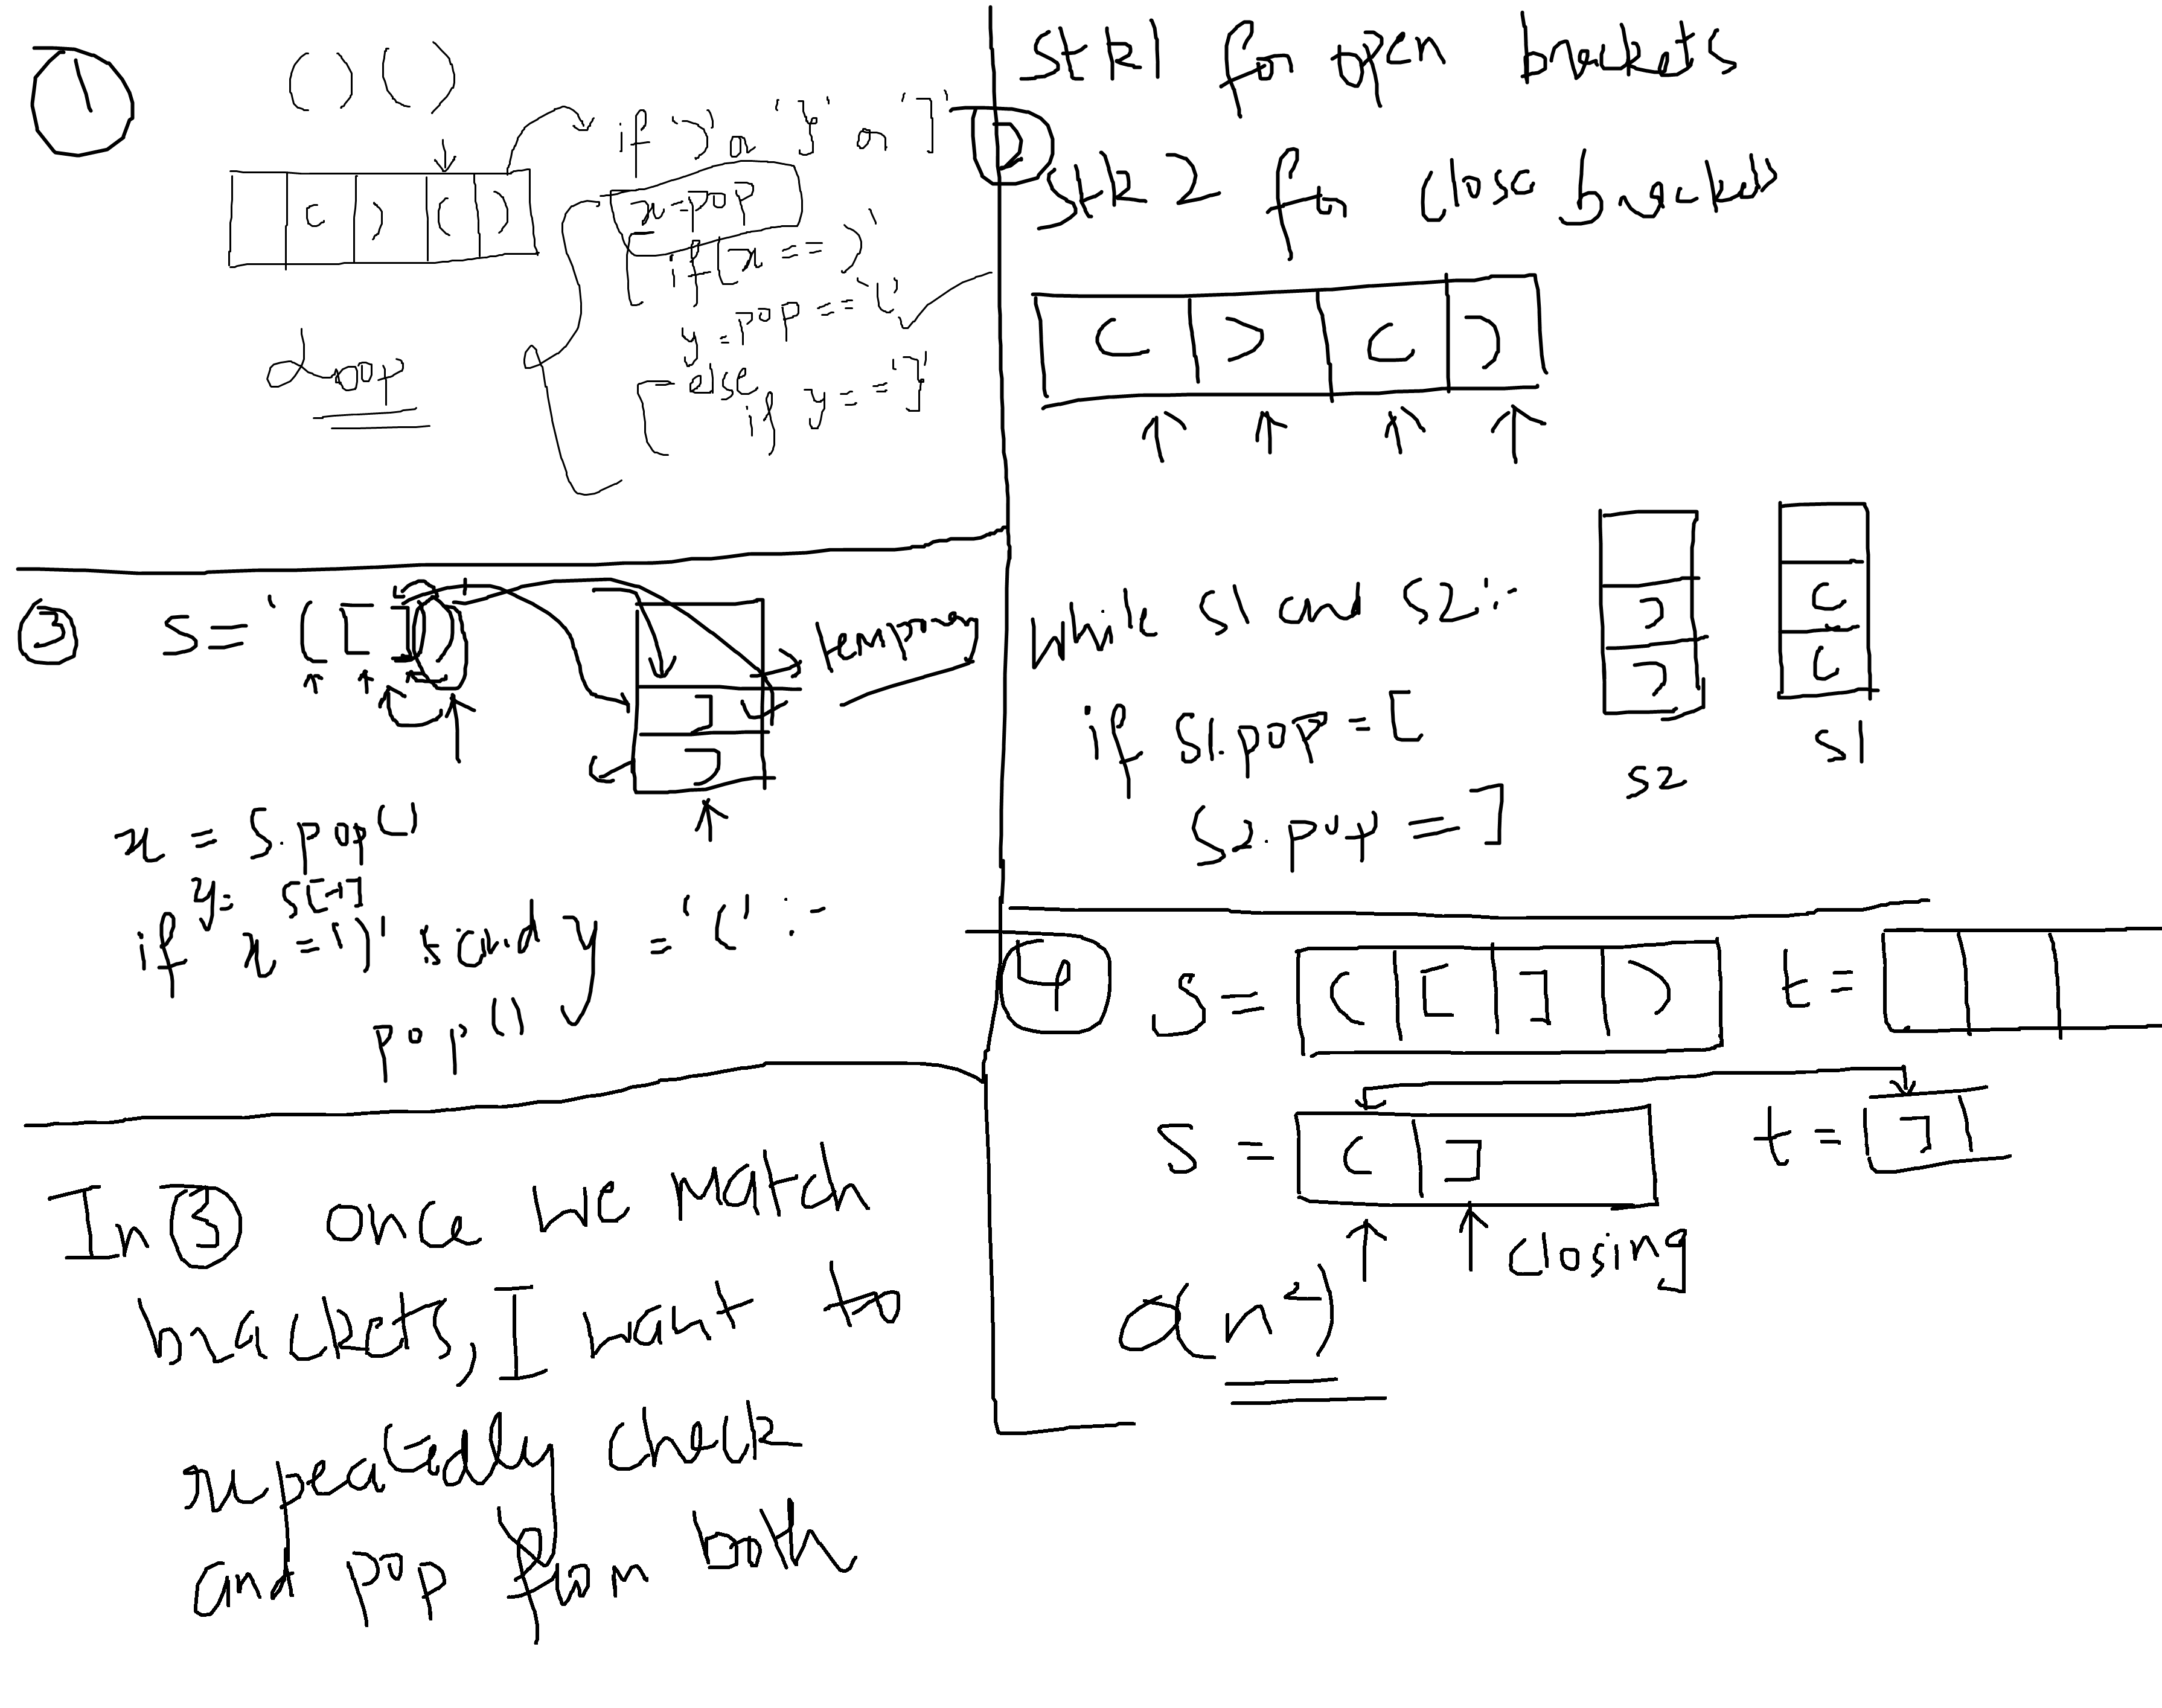 1
( ) ( )
if ')' or '}' or ']'
x = pop
( ) ( )
if (x == ')'
y = pop == '('
Loop
else
if y == ']'
2
stk1 for open brackets
stk2 for close brackets
( ) ( )
while s1 and s2:-
) (
) (
if s1.pop = [
s2.pop = ]
s2
s1
3
s = '([])'
temporary
]
)
x = s.pop()
y = s[-1]
if x = ')' and y = '(' :-
pop()
In 3 once we match
brackets, I want to
repeatedly check
and pop from both
4
s = ( [ ] )
t =
s = ( ]
t = ]
closing
O(n²)